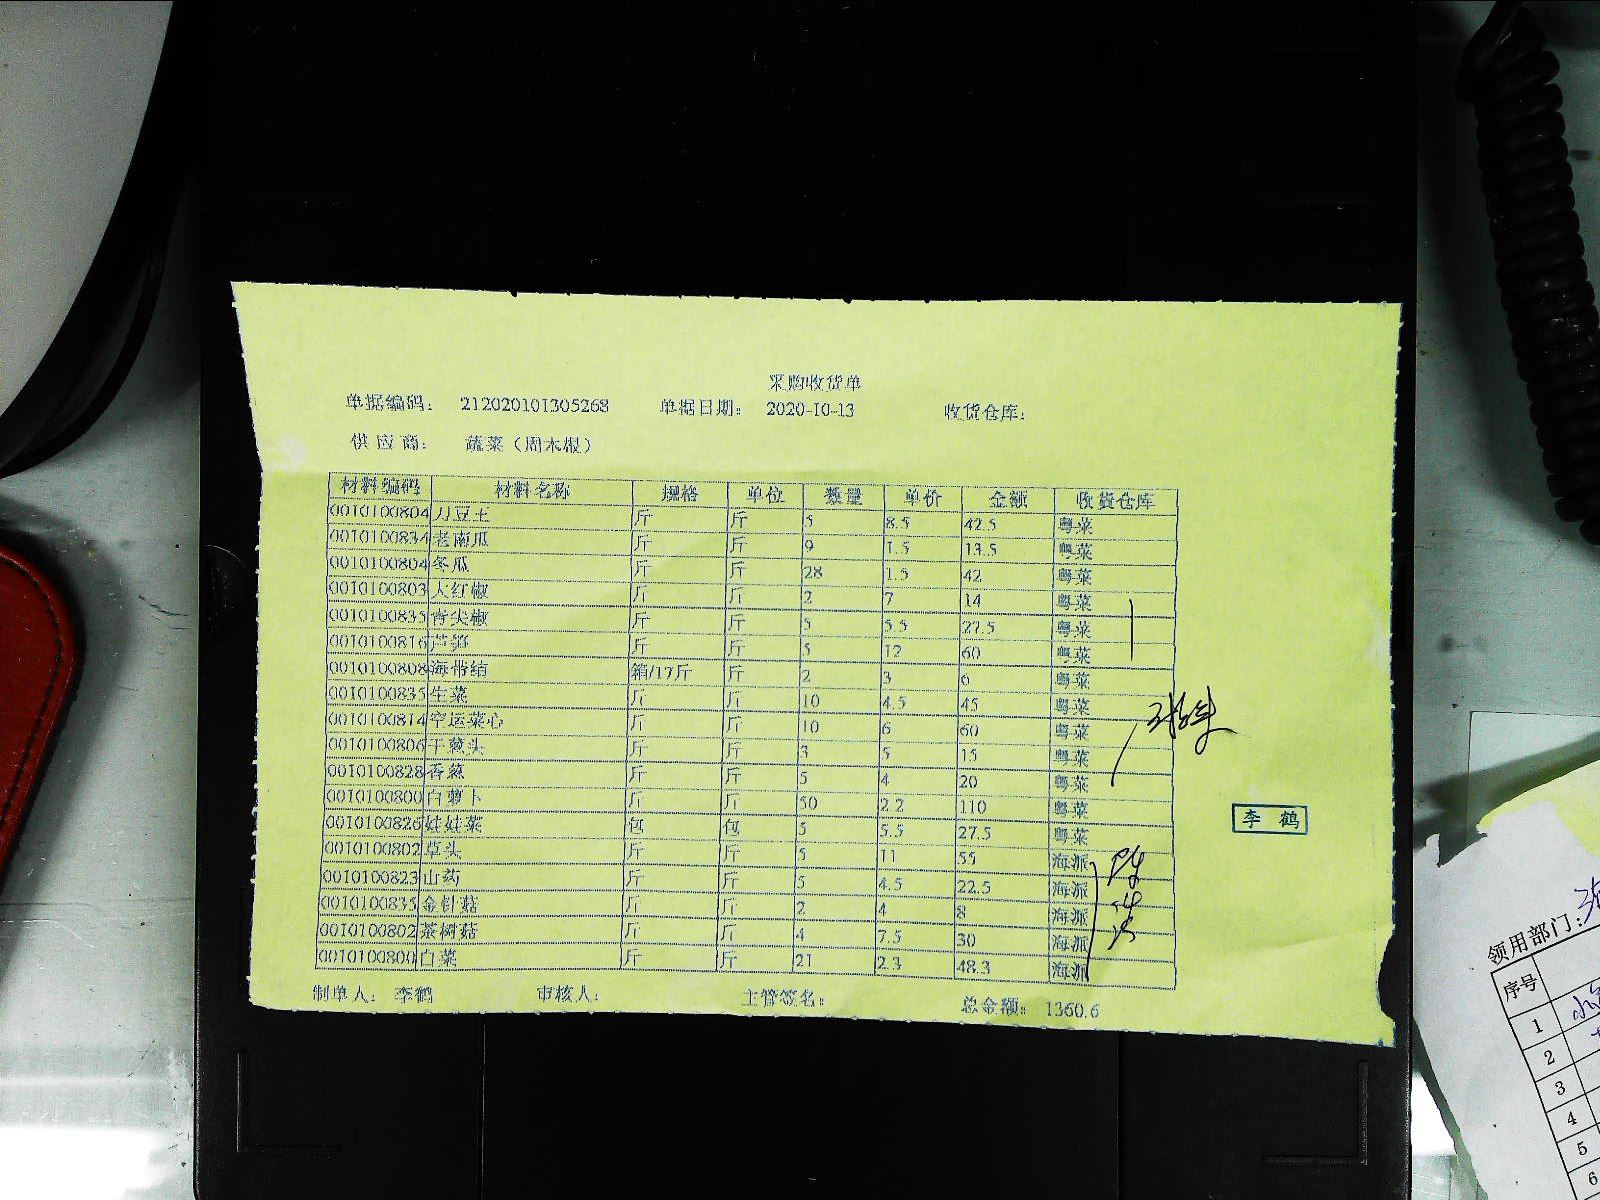 采购收货单
单据编码： 212020101305268 单据日期： 2020-10-13 收货仓库：
供应商： 蔬菜（周木根）
材料编码 材料名称 规格 单位 数量 单价 金额 收货仓库
0010100804 刀豆王 斤 斤 5 8.5 42.5 粤菜
0010100834 老南瓜 斤 斤 9 1.5 13.5 粤菜
0010100804 冬瓜 斤 斤 28 1.5 42 粤菜
0010100803 大红椒 斤 斤 2 7 14 粤菜
0010100835 青尖椒 斤 斤 5 5.5 27.5 粤菜
0010100816 芦笋 斤 斤 5 12 60 粤菜
0010100808 海带结 箱/17斤 斤 2 3 6 粤菜
0010100835 生菜 斤 斤 10 4.5 45 粤菜
0010100814 空运菜心 斤 斤 10 6 60 粤菜
0010100806 干葱头 斤 斤 3 5 15 粤菜
0010100828 香葱 斤 斤 5 4 20 粤菜
0010100800 白萝卜 斤 斤 50 2.2 110 粤菜
0010100826 娃娃菜 包 包 5 5.5 27.5 粤菜
0010100802 草头 斤 斤 5 11 55 海派
0010100823 山药 斤 斤 5 4.5 22.5 海派
0010100835 金针菇 斤 斤 2 4 8 海派
0010100802 茶树菇 斤 斤 4 7.5 30 海派
0010100800 白菜 斤 斤 21 2.3 48.3 海派
制单人： 李鹤 审核人： 主管签名： 总金额： 1360.6
李 鹤
领用部门：
序号
1
2
3
4
5
6